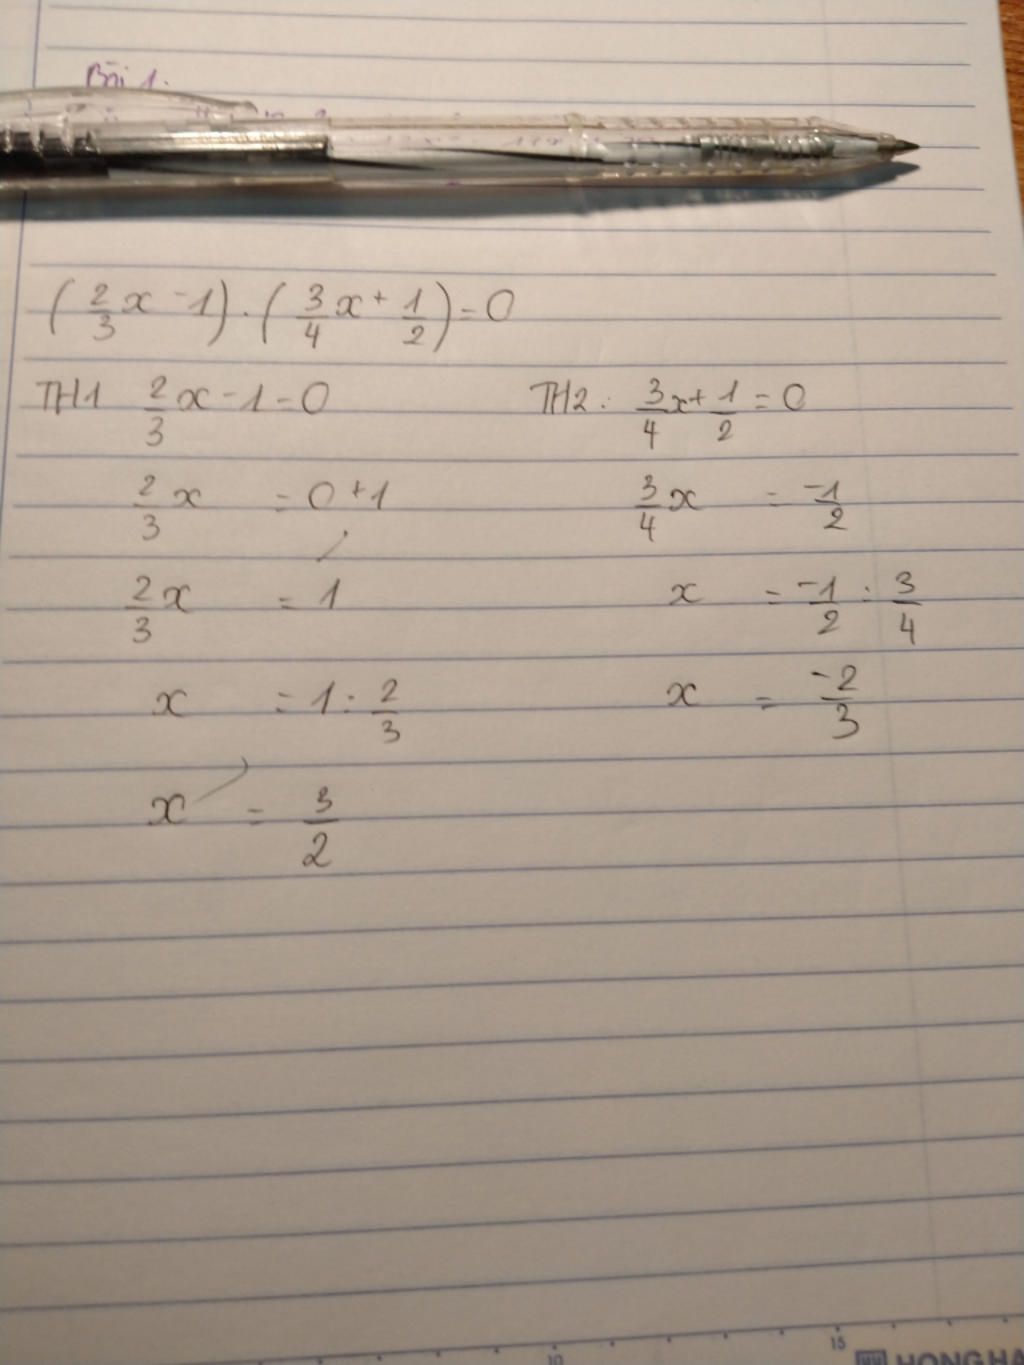 Bài 1:
(2/3 x - 1) . (3/4 x + 1/2) = 0
TH1 2/3 x - 1 = 0
2/3 x = 0 + 1
2/3 x = 1
x = 1 : 2/3
x = 3/2
TH2: 3/4 x + 1/2 = 0
3/4 x = -1/2
x = -1/2 : 3/4
x = -2/3
10
15
HONG HA